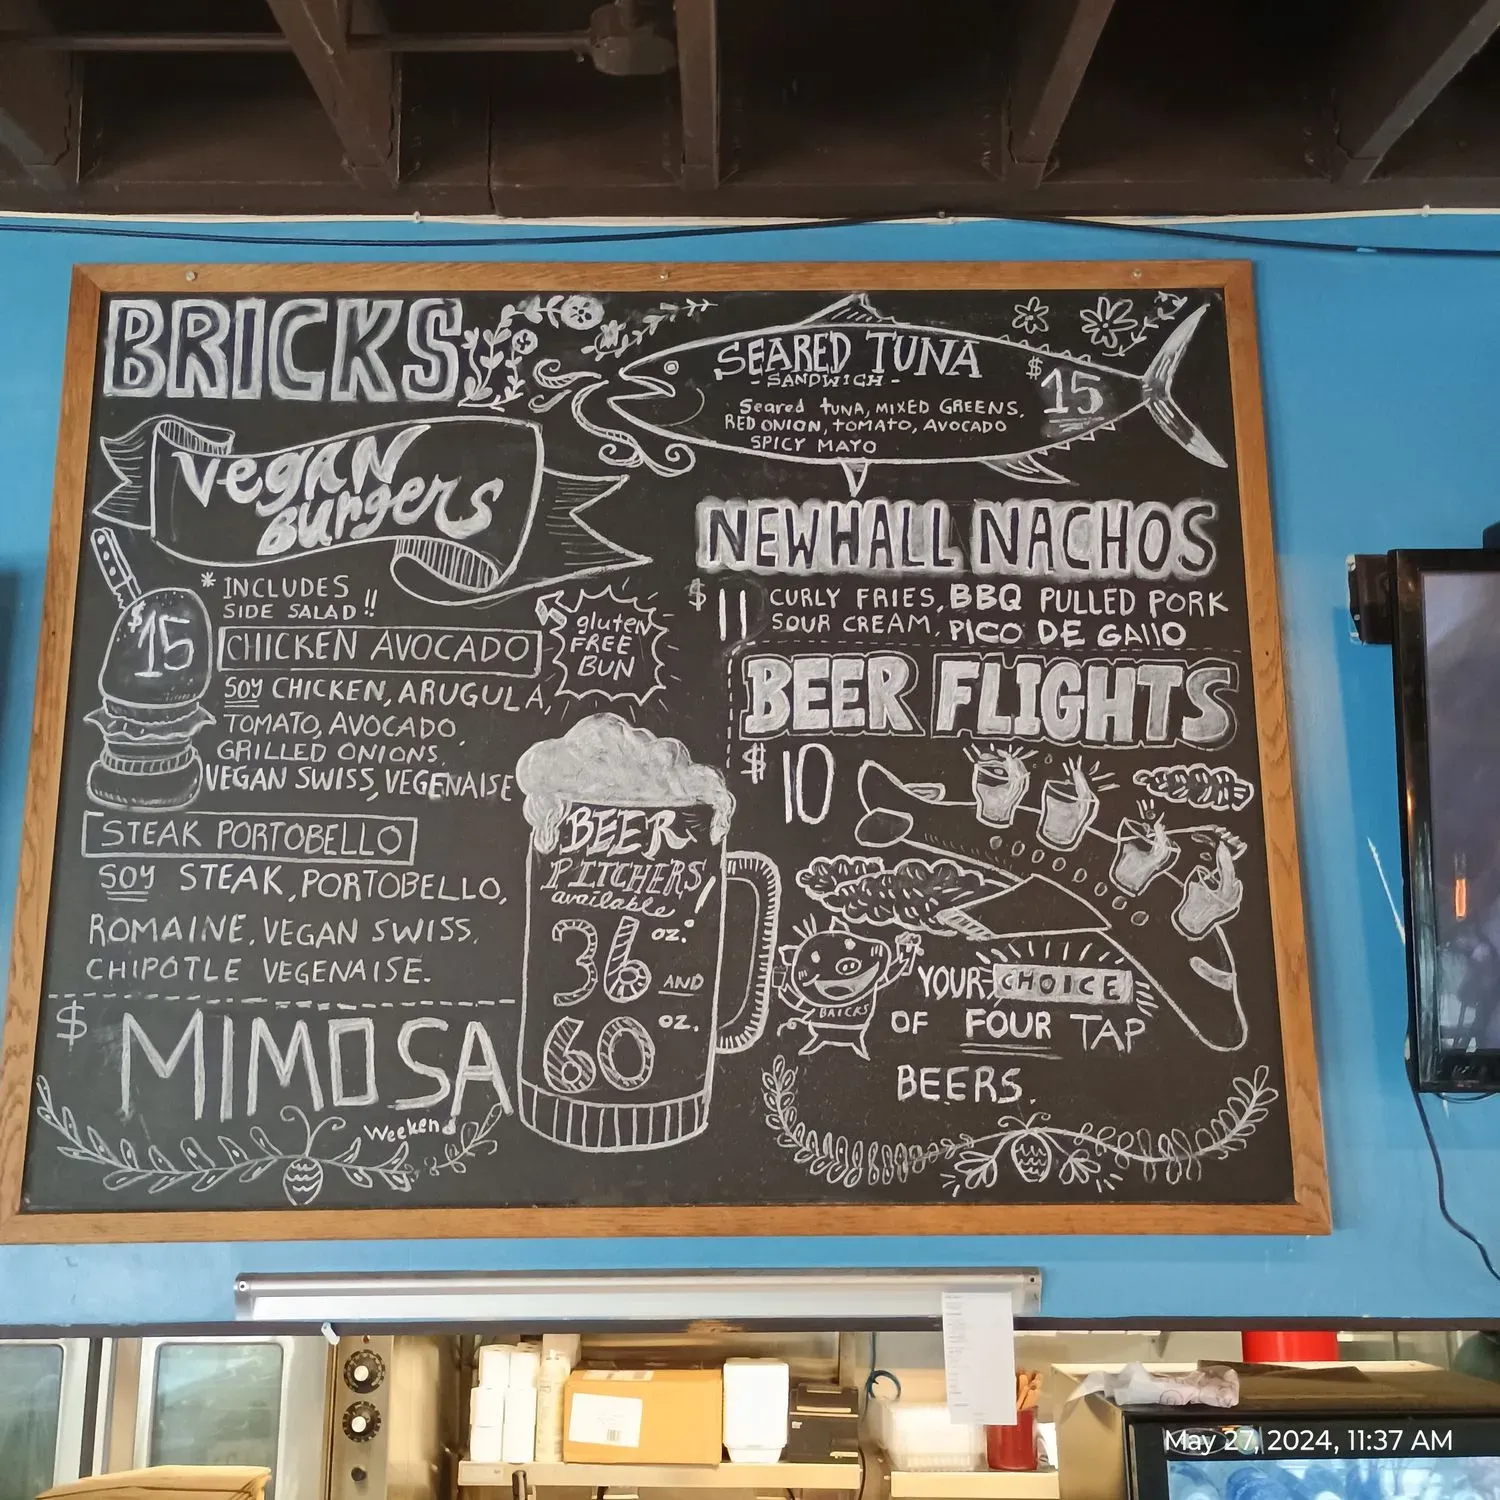 BRICKS
VEGAN
BURGERS
* INCLUDES
SIDE SALAD!!
$15
CHICKEN AVOCADO
SOY CHICKEN, ARUGULA,
TOMATO, AVOCADO
GRILLED ONIONS,
VEGAN SWISS, VEGENAISE
gluten
FREE
BUN
STEAK PORTOBELLO
SOY STEAK, PORTOBELLO,
ROMAINE, VEGAN SWISS,
CHIPOTLE VEGENAISE.
$ MIMOSA
Weekend
BEER
PITCHERS
available!
36 oz.
AND
60 oz.
SEARED TUNA
- SANDWICH -
$15
Seared tuna, MIXED GREENS,
RED ONION, TOMATO, AVOCADO
SPICY MAYO
NEWHALL NACHOS
$11 CURLY FRIES, BBQ PULLED PORK
SOUR CREAM, PICO DE GAllO
BEER FLIGHTS
$10
BRICKS
YOUR CHOICE
OF FOUR TAP
BEERS.
May 27, 2024, 11:37 AM